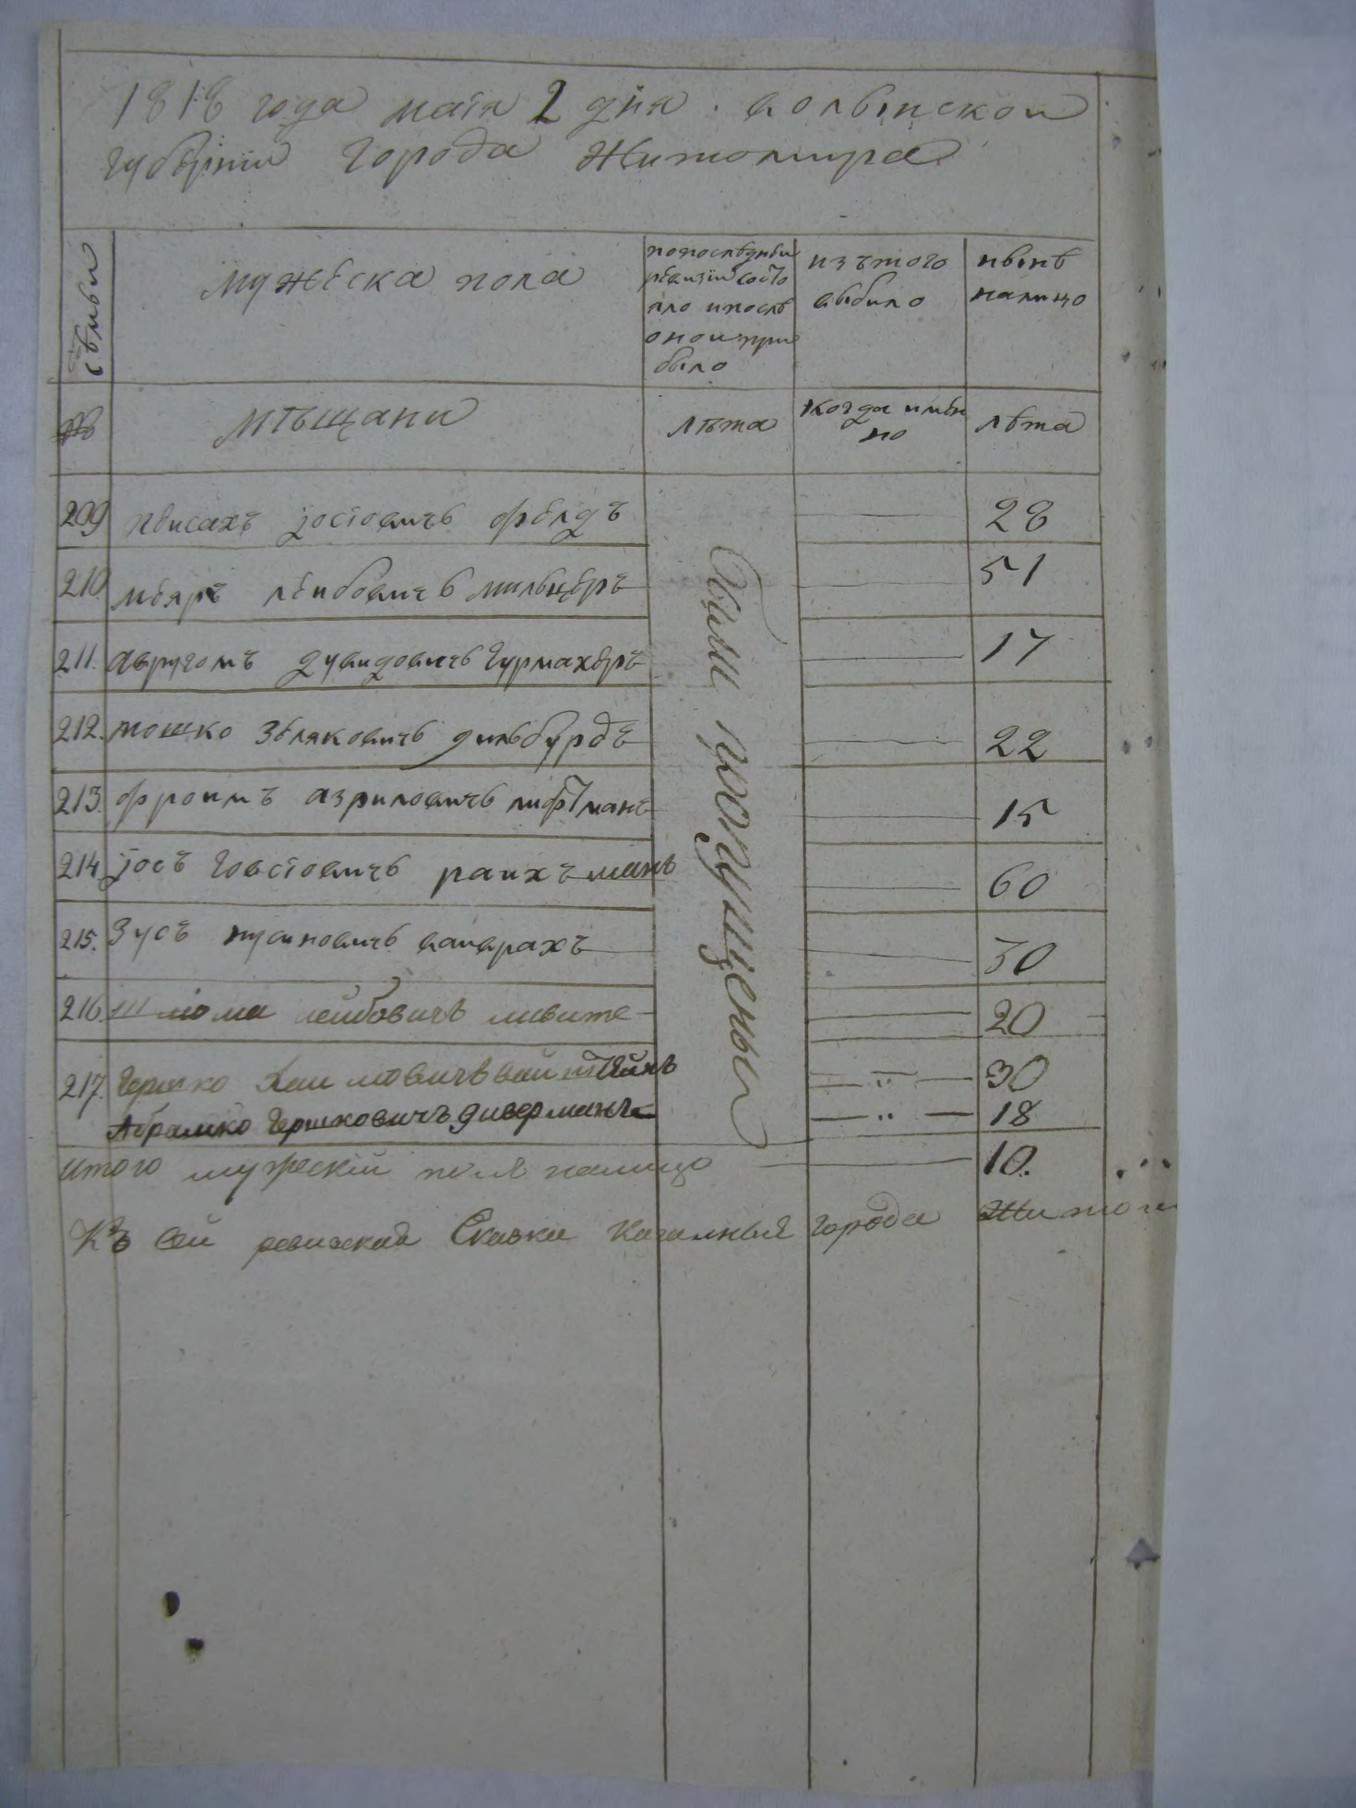 1818 года маія 2 дня. волынской
губерніи города Житомира
Семьи
мужеска пола
попоследней
ревизіи состо
яло ипосле
оной при
было
изътого
выбыло
ныне
налицо
№
мѣщани
лѣта
когда имен
но
лѣта
Были пропущены
209 пейсахъ іосіовичь фелдъ 28
210. меяръ лейбовичь мильнеръ 51
211. авругомъ дувидовичь гурмахеръ 17
212. мошко зеляковичь дильбурдъ 22
213. фроимъ азриловичь лифтманъ 15
214 іосъ говсіовичь раихъманъ 60
215. Зусъ нусиновичь вайврахъ 50
216. шліома лейбовичъ левите 20
217. Гершко Хаимовичъ вайнштейнъ 30
Абрамко Гершковичъ диверманъ 18
итого мужескій пола налицо 10.
Къ сей ревизской Сказки Кагалныя города Житом